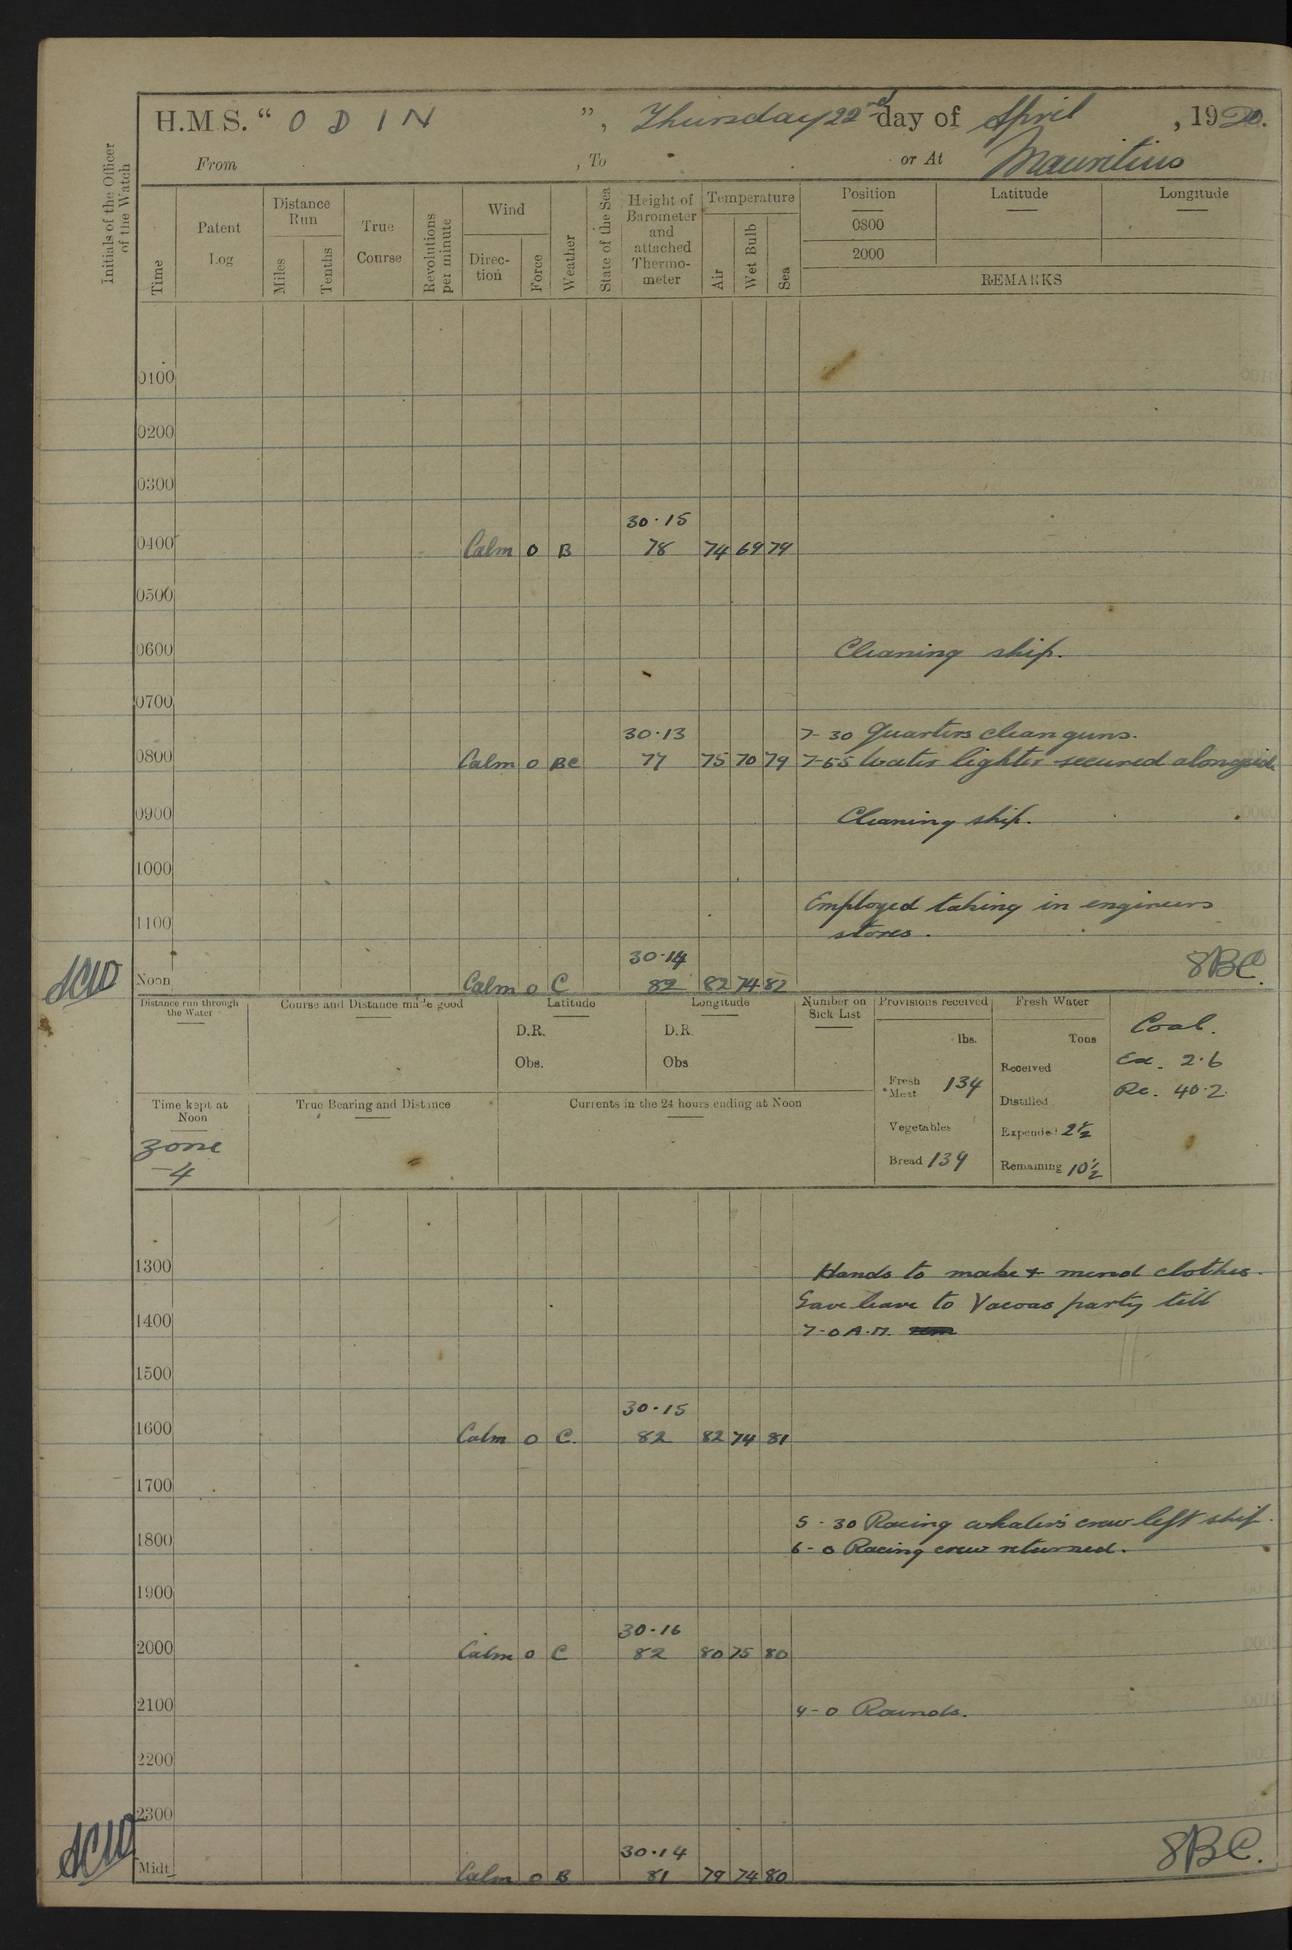 H.M.S. “ O D I N ”, Thursday 22nd day of April, 1920.
From , To or At Mauritius
Initials of the Officer of the Watch
Time
Patent Log
Distance Run
Miles
Tenths
True Course
Revolutions per minute
Wind
Direction
Force
Weather
State of the Sea
Height of Barometer and attached Thermometer
Temperature
Air
Wet Bulb
Sea
Position Latitude Longitude
0800
2000
REMARKS
0100
0200
0300
30·15
0400 Calm 0 B 78 74 69 79
0500
0600 Cleaning ship.
0700
30·13 7-30 Quarters clean guns.
0800 Calm 0 BC 77 75 70 79 7-55 Water lighter secured alongside
0900 Cleaning ship.
1000
Employed taking in engineers
1100 stores.
30·14
Noon Calm 0 C 82 82 74 82 8BC.
Distance run through the Water
Course and Distance made good
Latitude
D.R.
Obs.
Longitude
D.R.
Obs
Number on Sick List
Provisions received
lbs.
Fresh Meat 134
Vegetables
Bread 139
Fresh Water
Tons
Received
Distilled
Expended 2½
Remaining 10½
Coal.
Ex. 2·6
Re. 40·2
Time kept at Noon
Zone
-4
True Bearing and Distance
Currents in the 24 hours ending at Noon
1300 Hands to make & mend clothes.
Gave leave to Vacoas party till
1400 7-0 A.M.
1500
30·15
1600 Calm 0 C. 82 82 74 81
1700
5-30 Racing whaler's crew left ship.
1800 6-0 Racing crew returned.
1900
30·16
2000 Calm 0 C 82 80 75 80
2100 9-0 Rounds.
2200
2300
30·14
Midt. Calm 0 B 81 79 74 80 8BC.